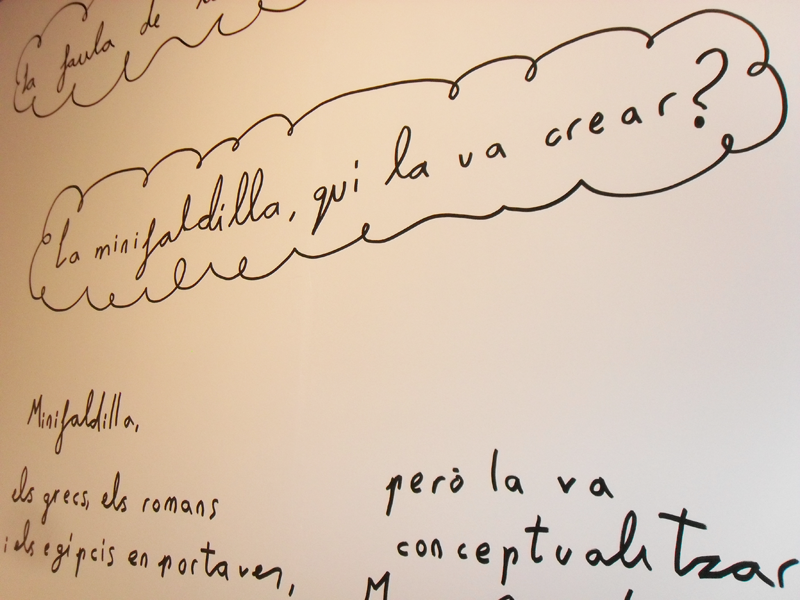 la faula de
la minifaldilla, qui la va crear?
Minifaldilla,
els grecs, els romans
i els egipcis en portaven,
però la va
conceptualitzar
M